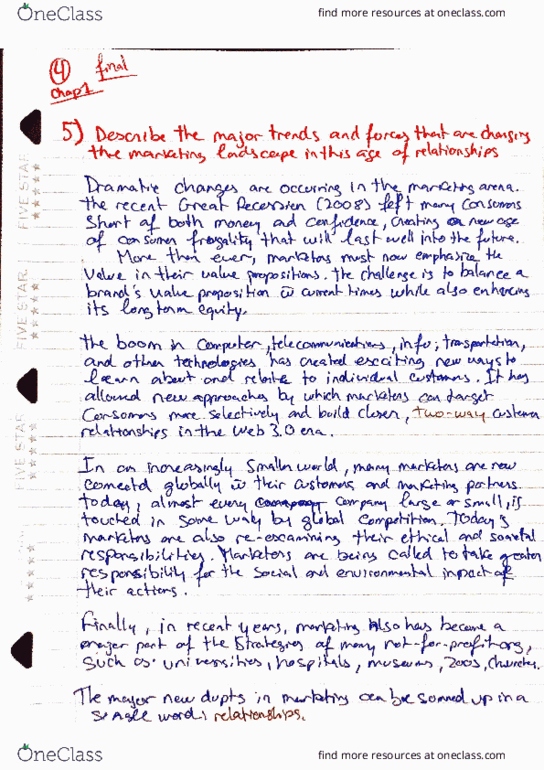 OneClass
find more resources at oneclass.com
④ final
Chap 1
5) Describe the major trends and forces that are changing
the marketing landscape in this age of relationships
Dramatic changes are occurring in the marketing arena.
The recent Great Recession (2008) left many consumers
Short of both money and confidence, creating a new age
of consumer frugality that will last well into the future.
More than ever, marketers must now emphasize the
value in their value propositions. The challenge is to balance a
brand's value proposition w current times while also enhancing
its long term equity.
The boom in computer, telecommunications, info, transportation,
and other technologies has created exciting new ways to
learn about and relate to individual customers. It has
allowed new approaches by which marketers can target
Consumers more selectively and build closer, two-way customer
relationships in the Web 3.0 era.
In an increasingly smaller world, many marketers are now
connected globally w their customers and marketing partners.
Today, almost every company large or small, is
touched in some way by global competition. Today's
marketers are also re-examining their ethical and societal
responsibilities. Marketers are being called to take greater
responsibility for the social and environmental impact of
their actions.
Finally, in recent years, marketing also has become a
major part of the strategies of many not-for-profit orgs,
Such as: universities, hospitals, museums, zoos, churches.
The major new dvpts in marketing can be summed up in a
single word: relationships.
FIVE STAR
FIVE STAR
FIVE STAR
OneClass
find more resources at oneclass.com